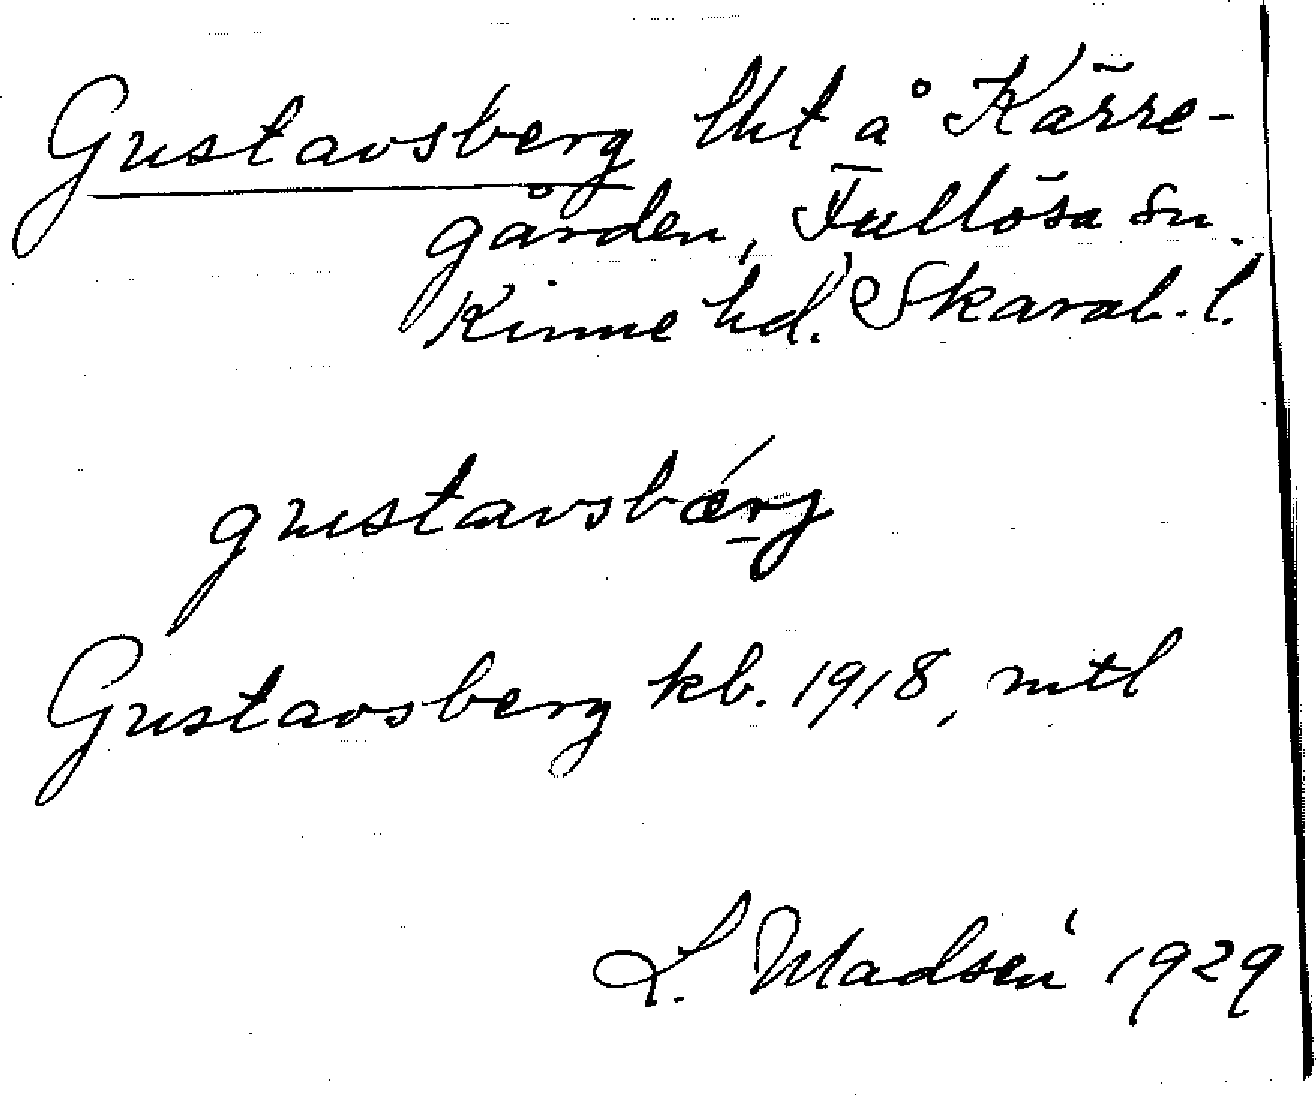 Gustavsberg lht å Kärre-
gården, Fullösa sn.
Kinne hd. Skarab. l.
gustavsbærj
Gustavsberg kb. 1918, mtl
L. Madsén 1929